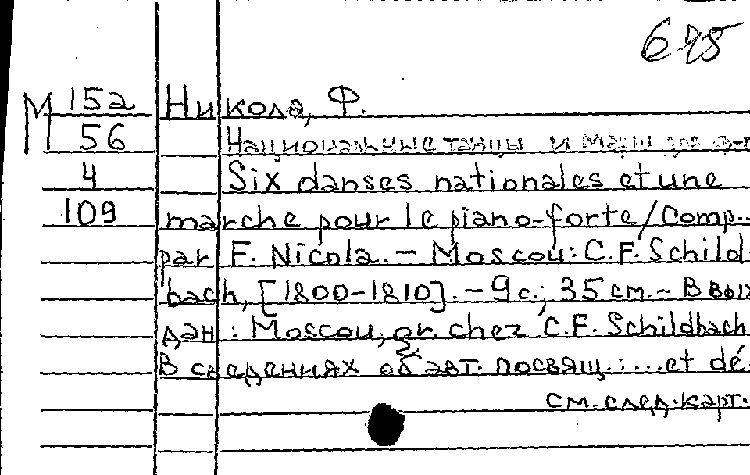 625
М 152 Никола, Ф.
56 Национальные танцы и марш для ф-п
4 Six danses nationales et une
109 marche pour le piano-forte/Comp..
par F. Nicola. – Moscou: C.F. Schild-
bach, [1800-1810]. – 9 с.; 35 см. – В вых.
дан: Moscou, chez C.F. Schildbach
В сведениях об авт. посвящ.: ...et dé
см. след. карт.